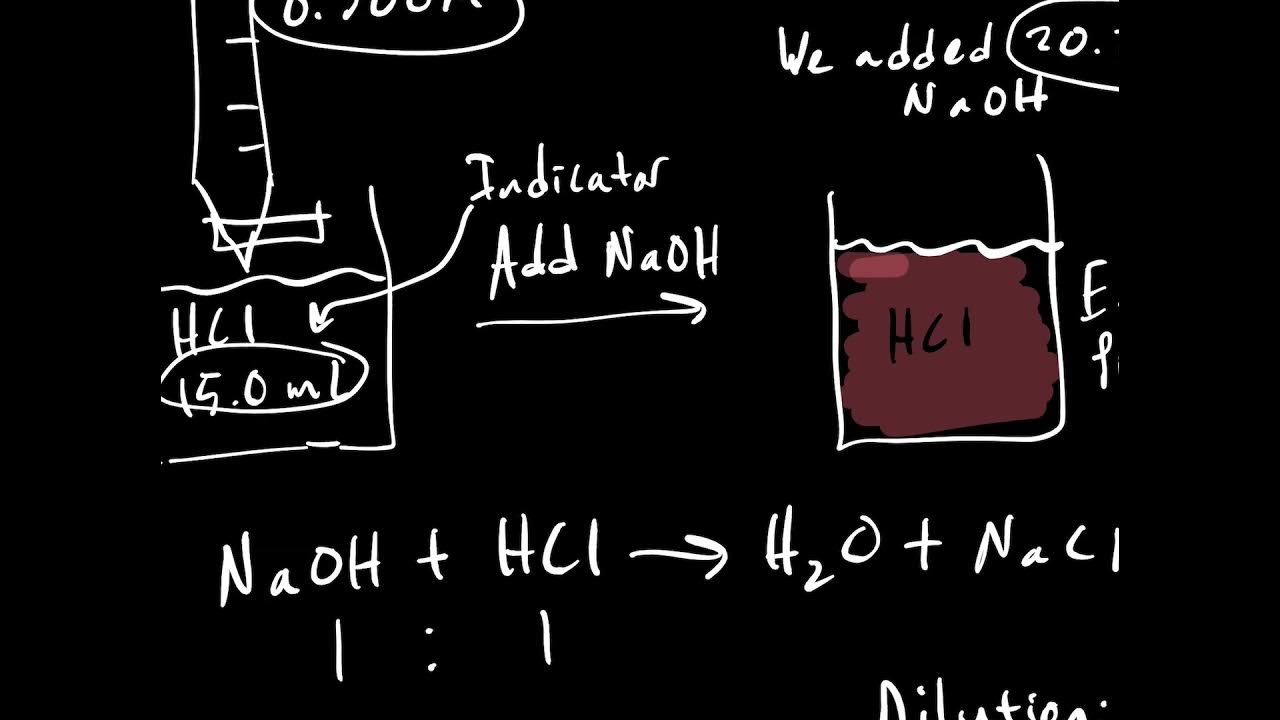 We added 20.
NaOH
Indicator
Add NaOH
HCl
15.0 ml
HCl
NaOH + HCl → H₂O + NaCl
1 : 1
Dilution: